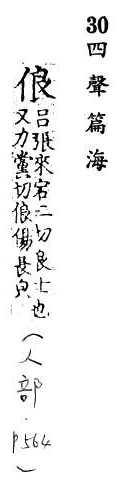 30 四聲篇海
俍 呂張來宕二切良士也
又力黨切俍偒長皃
（人部．P564）